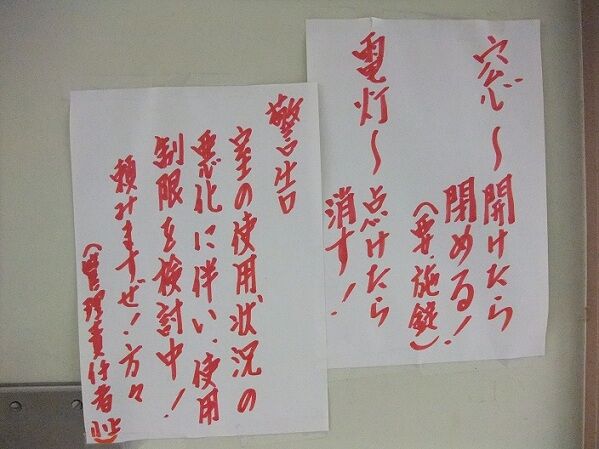 窓〜開けたら
閉める!
(要・施錠)
電灯〜点けたら
消す!
警告
室の使用状況の
悪化に伴い、使用
制限を検討中!
頼みますぜ!方々
(管理責任者